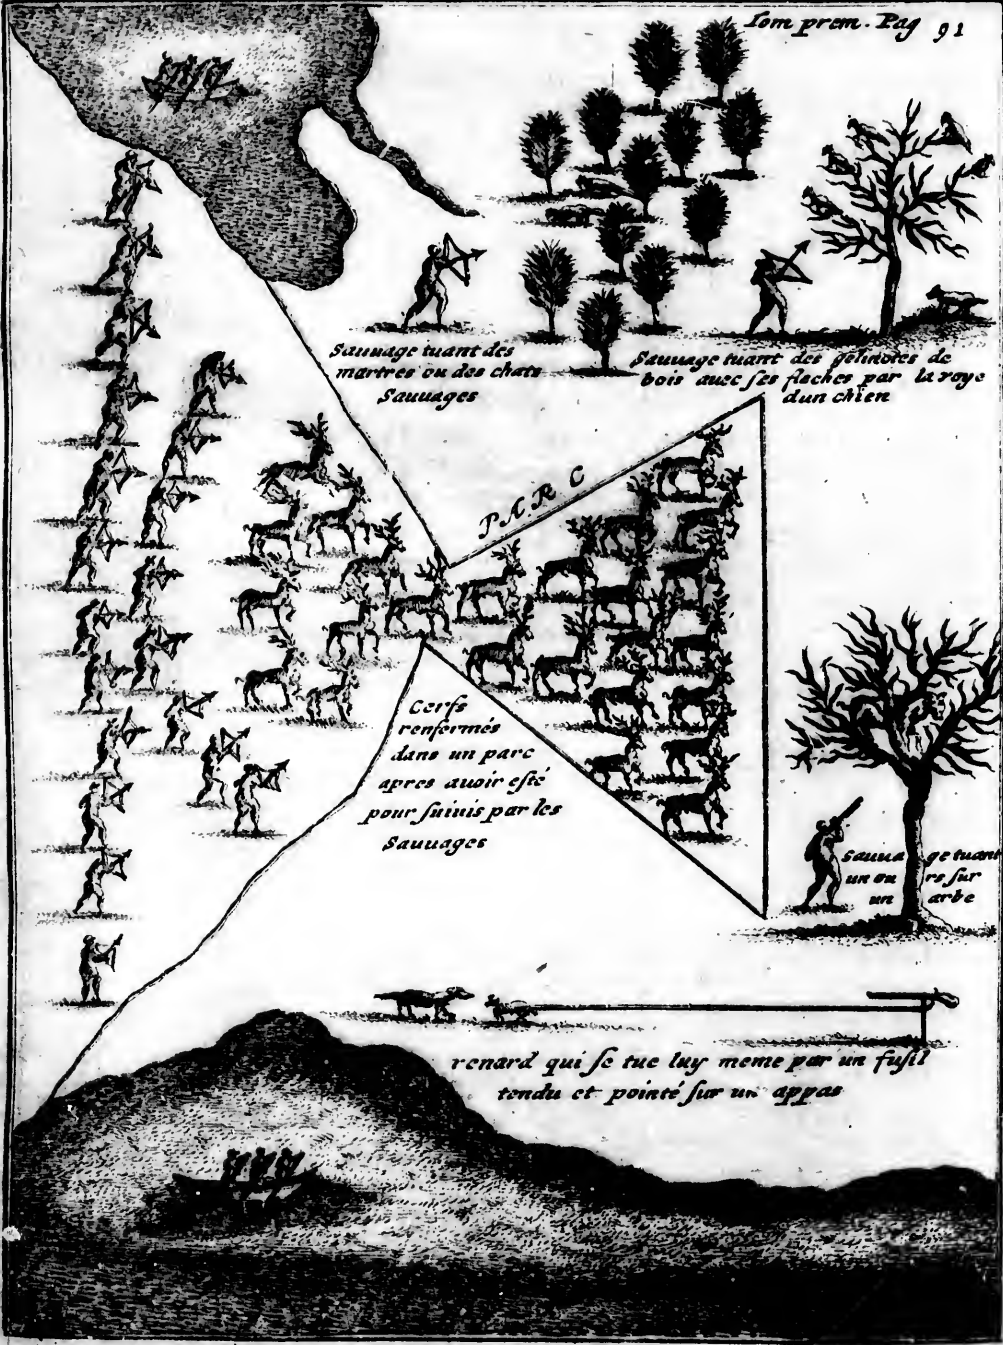 Tom prem. Pag 91
Sauuage tuant des
martres ou des chats
Sauuages
Sauuage tuant des gelinotes de
bois auec ses fleches par la voye
dun chien
PARC
Cerfs
renfermés
dans un parc
apres auoir esté
pour suiuis par les
Sauuages
Sauuage tuant
un ours sur
un arbe
renard qui se tue luy meme par un fusil
tendu et pointé sur un appas